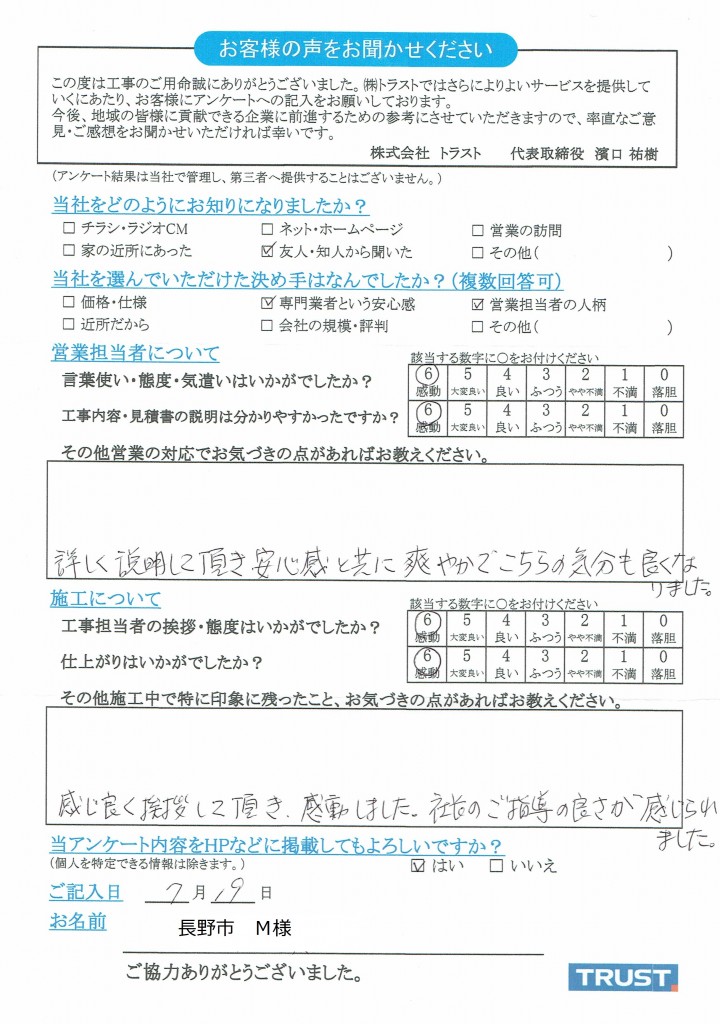 お客様の声をお聞かせください
この度は工事のご用命誠にありがとうございました。㈱トラストではさらによりよいサービスを提供して
いくにあたり、お客様にアンケートへの記入をお願いしております。
今後、地域の皆様に貢献できる企業に前進するための参考にさせていただきますので、率直なご意
見・ご感想をお聞かせいただければ幸いです。
株式会社 トラスト 代表取締役 濱口 祐樹
(アンケート結果は当社で管理し、第三者へ提供することはございません。)
当社をどのようにお知りになりましたか?
☐ チラシ・ラジオCM ☐ ネット・ホームページ ☐ 営業の訪問
☐ 家の近所にあった ☑ 友人・知人から聞いた ☐ その他( )
当社を選んでいただけた決め手はなんでしたか?(複数回答可)
☐ 価格・仕様 ☑ 専門業者という安心感 ☑ 営業担当者の人柄
☐ 近所だから ☐ 会社の規模・評判 ☐ その他( )
営業担当者について
該当する数字に○をお付けください
言葉使い・態度・気遣いはいかがでしたか?
6 5 4 3 2 1 0
感動 大変良い 良い ふつう やや不満 不満 落胆
工事内容・見積書の説明は分かりやすかったですか?
6 5 4 3 2 1 0
感動 大変良い 良い ふつう やや不満 不満 落胆
その他営業の対応でお気づきの点があればお教えください。
詳しく説明して頂き安心感と共に爽やかでこちらの気分も良くな
りました。
施工について
該当する数字に○をお付けください
工事担当者の挨拶・態度はいかがでしたか?
6 5 4 3 2 1 0
感動 大変良い 良い ふつう やや不満 不満 落胆
仕上がりはいかがでしたか?
6 5 4 3 2 1 0
感動 大変良い 良い ふつう やや不満 不満 落胆
その他施工中で特に印象に残ったこと、お気づきの点があればお教えください。
感じ良く挨拶して頂き、感動しました。社長のご指導の良さが感じられ
ました。
当アンケート内容をHPなどに掲載してもよろしいですか?
(個人を特定できる情報は除きます。) ☑ はい ☐ いいえ
ご記入日 7月19日
お名前 長野市 M様
ご協力ありがとうございました。
TRUST